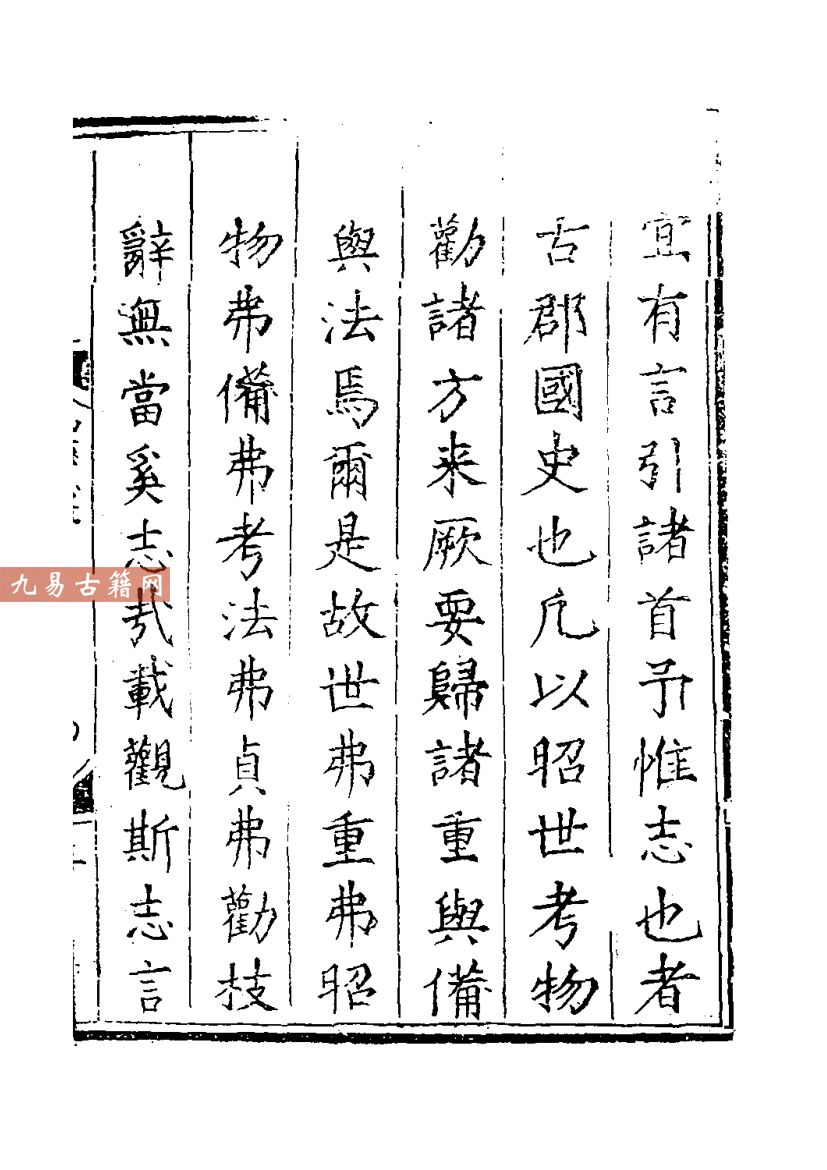 宜有言引諸首予惟志也者
古郡國史也凡以昭世考物
勸諸方来厥要歸諸重與備
與法焉爾是故世弗重弗昭
物弗備弗考法弗貞弗勸枝
辭無當奚志㦲載觀斯志言
九易古籍网